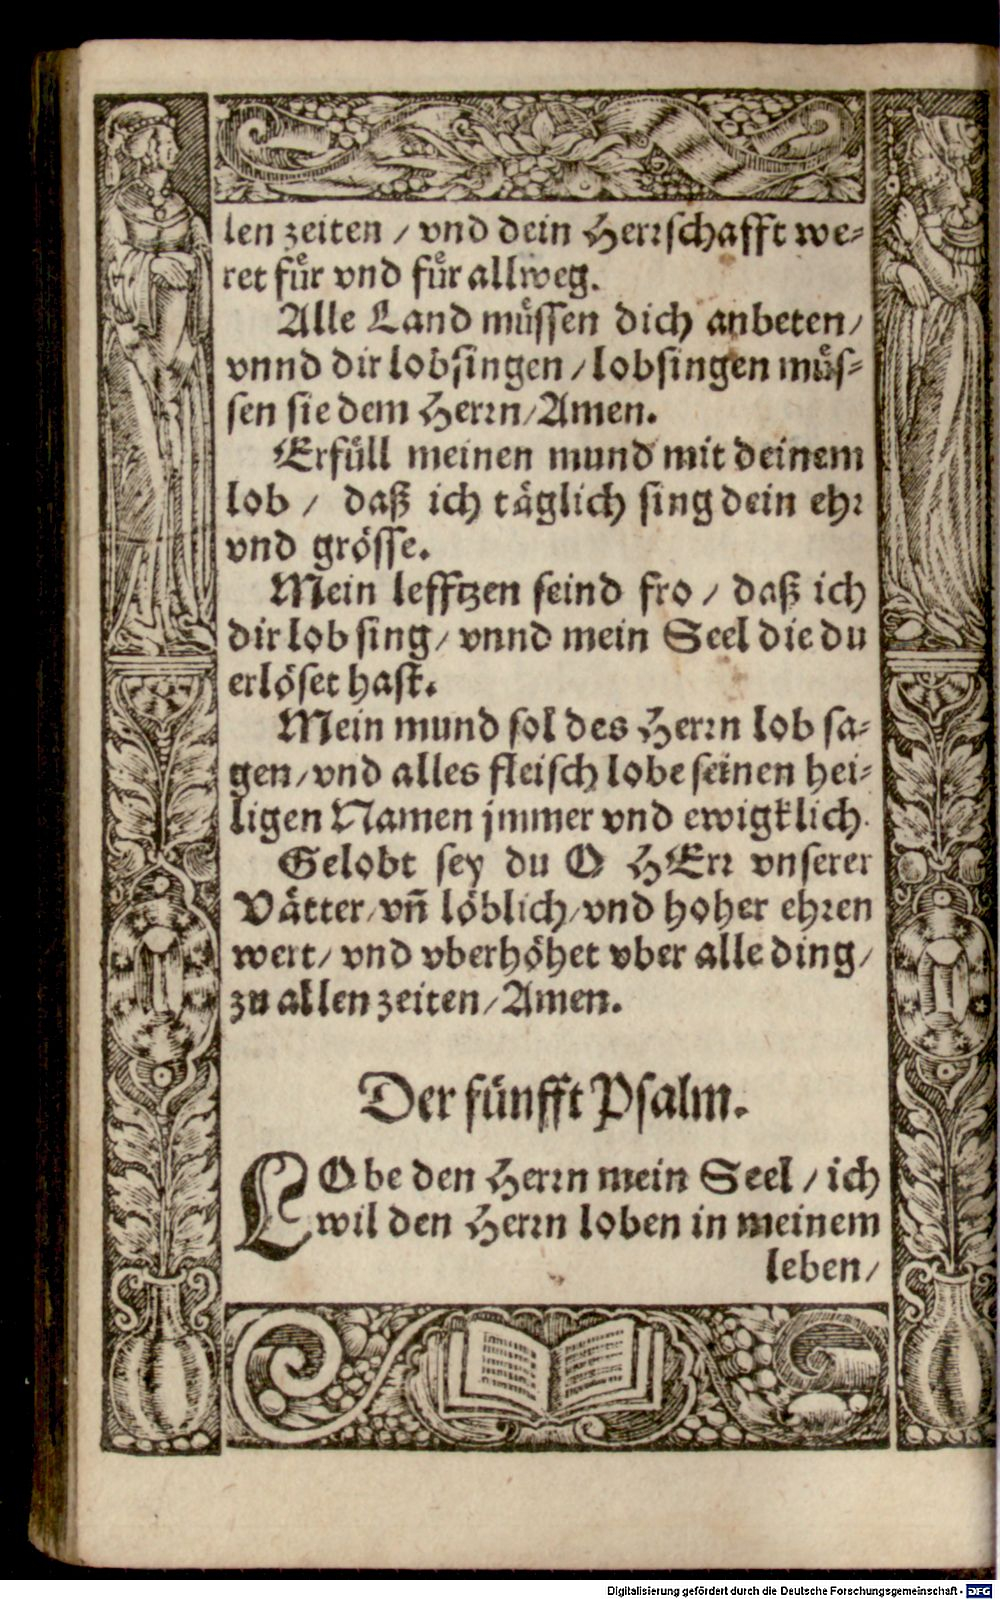 len zeiten / vnd dein Herrschafft we⸗
ret fuͤr vnd fuͤr allweg.
Alle Land muͤssen dich anbeten/
vnnd dir lobsingen / lobsingen muͤs⸗
sen sie dem Herrn/Amen.
Erfuͤll meinen mund mit deinem
lob / daß ich taͤglich sing dein ehr
vnd groͤsse.
Mein lefftzen seind fro / daß ich
dir lob sing/ vnnd mein Seel die du
erloͤset hast.
Mein mund sol des Herrn lob sa⸗
gen/vnd alles fleisch lobe seinen hei⸗
ligen Namen jmmer vnd ewigklich.
Gelobt sey du O HErr vnserer
Vaͤtter/vn̄ loͤblich/vnd hoher ehren
wert/ vnd vberhoͤhet vber alle ding/
zu allen zeiten/Amen.
Der fuͤnfft Psalm.
LObe den Herrn mein Seel / ich
wil den Herrn loben in meinem
leben/
Digitalisierung gefördert durch die Deutsche Forschungsgemeinschaft - DFG